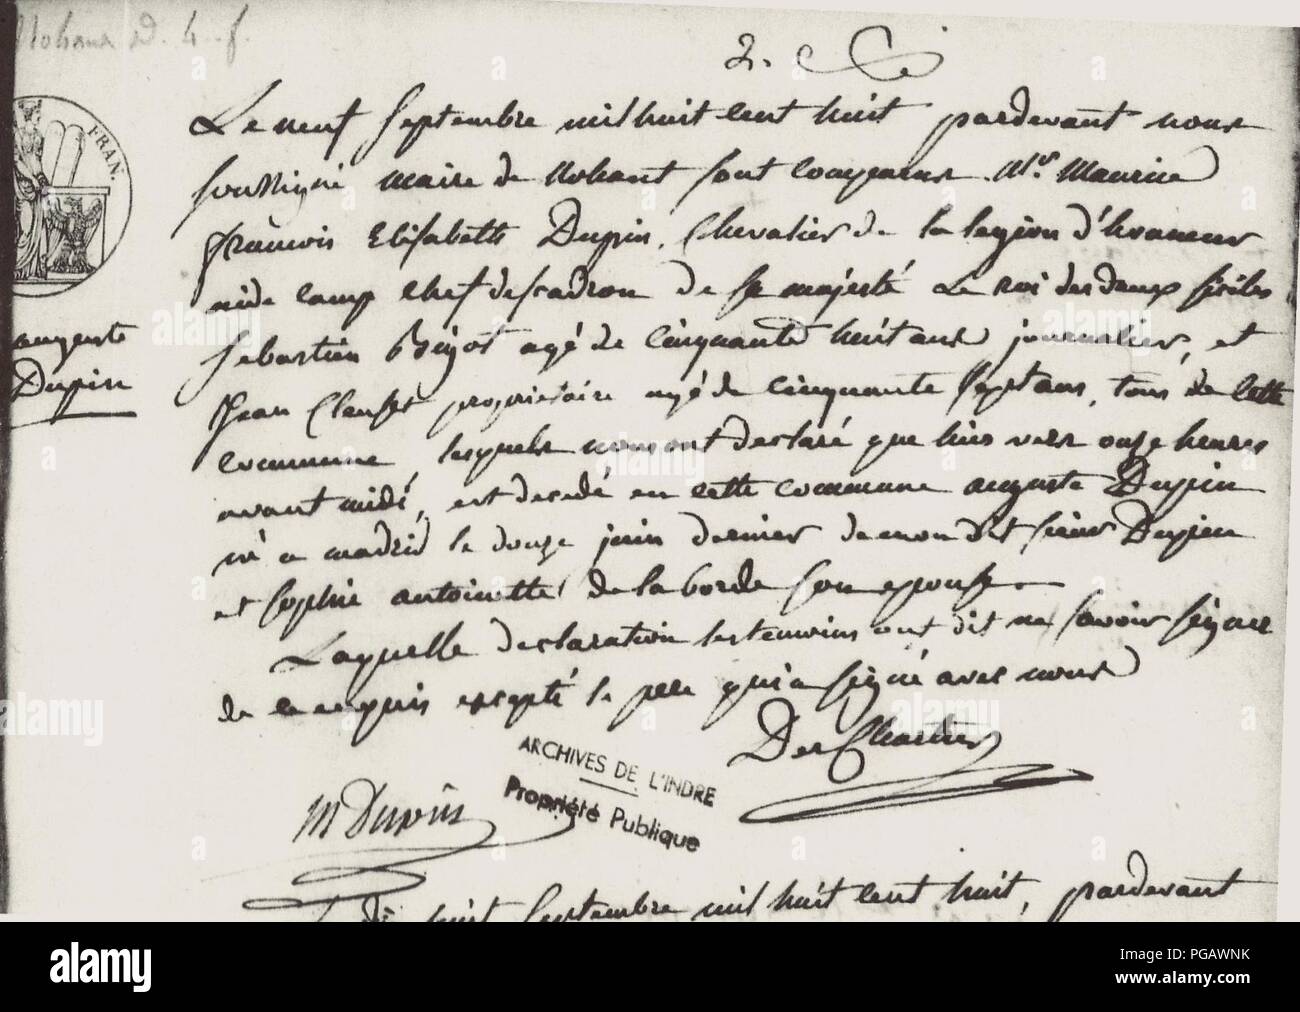 Nohant D. 4. f.
2.
FRAN.
Le neuf Septembre mil huit Cent huit pardevant nous
soussigné maire de Nohant sont Comparus Mr. Maurice
françois Elisabeth Dupin, Chevalier de la legion d'honneur
aide Camp Chef descadron de Sa majesté Le Roi des deux siciles
Sebastien agé de Cinquante huit ans journalier, et
Jean propriétaire agé de Cinquante Sept ans, tous de Cette
Commune lesquels nous ont declaré que hier vers onze heures
avant midi, est decedé en Cette Commune auguste Dupin
né a madrid le douze juin dernier de mon dit sieur Dupin
et Sophie antoinette de la borde son epouse
Laquelle declaration les temoins ont dit ne savoir signer
de ce requis excepté le pere qui a signé avec nous
auguste
Dupin
DesChartres
M Dupin
ARCHIVES DE L'INDRE
Propriété Publique
huit Septembre mil huit Cent huit, pardevant
alamy
Image ID: PGAWNK
www.alamy.com